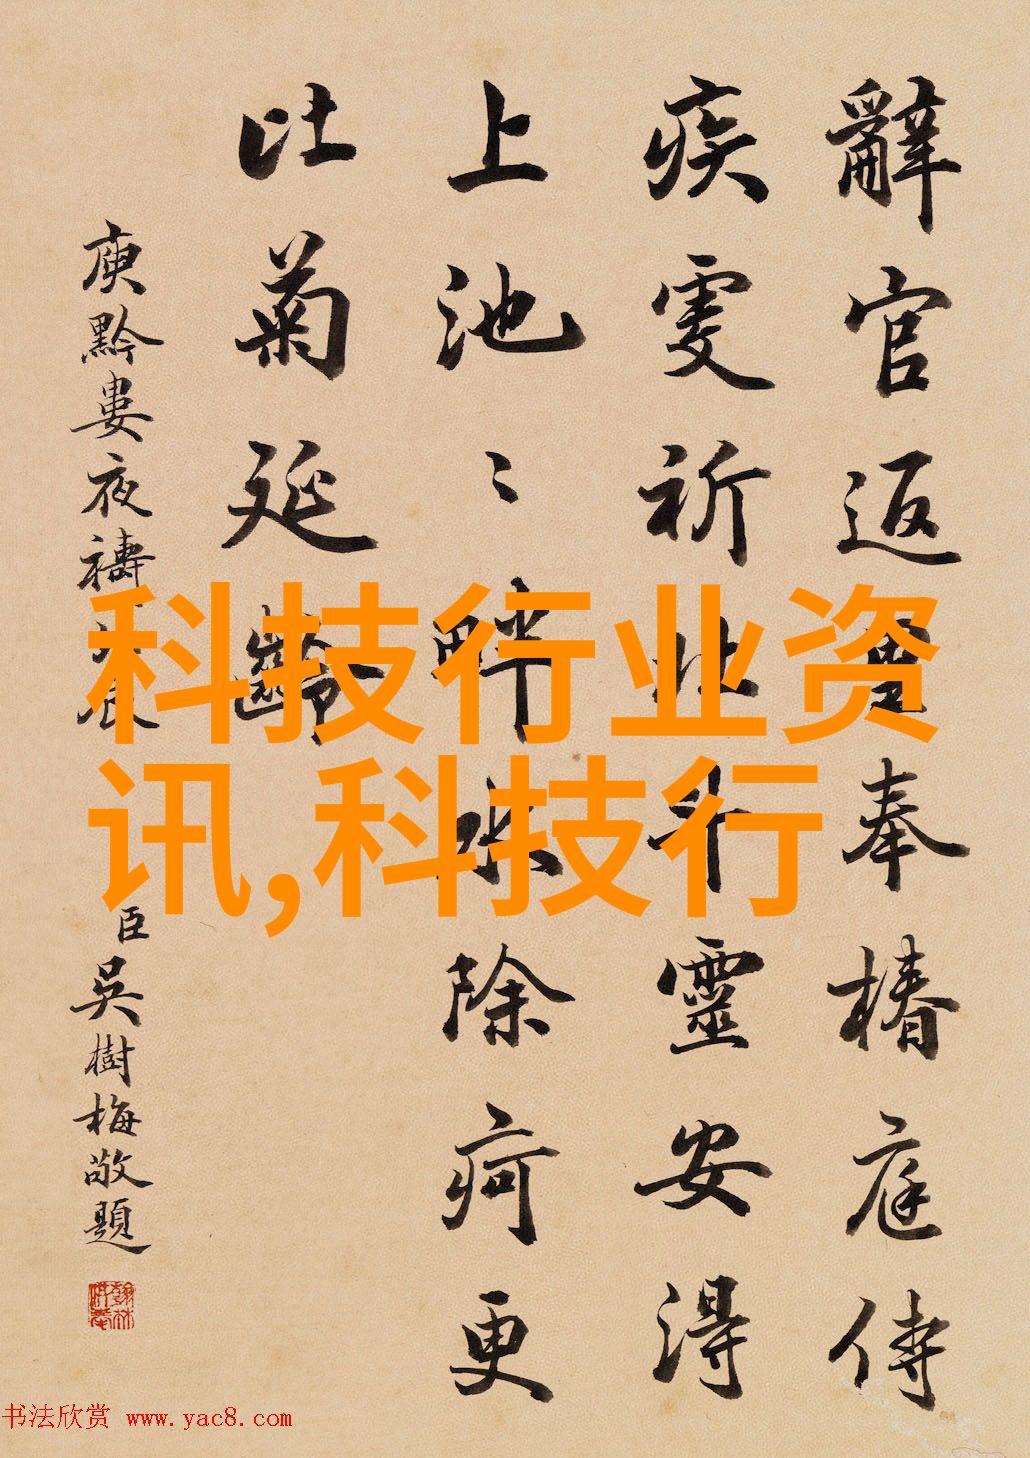 辭官返里奉椿庭侍
疾虔祈北斗靈安得
上池〻畔水除疴更
比菊延齡
庾黔婁夜禱辰 臣吳樹梅敬題
科技行业资
讯,科技行
书法欣赏 www.yac8.com